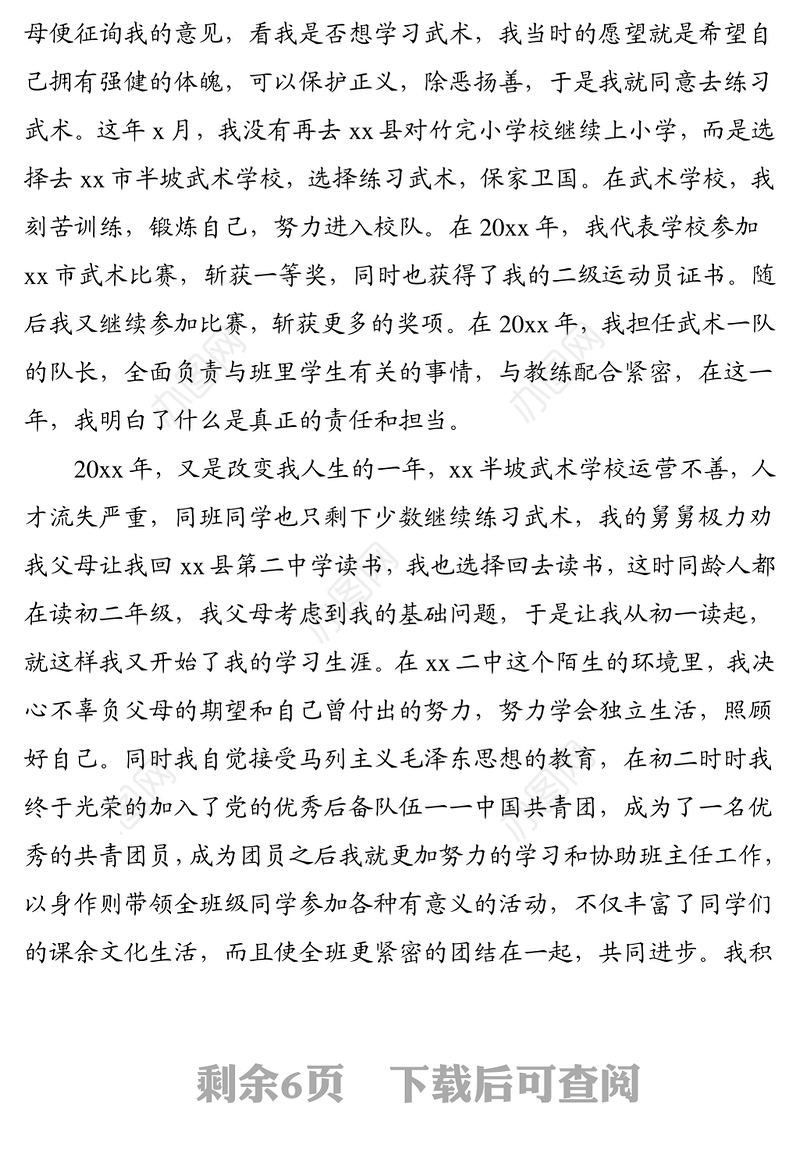 母便征询我的意见，看我是否想学习武术，我当时的愿望就是希望自
己拥有强健的体魄，可以保护正义，除恶扬善，于是我就同意去练习
武术。这年 x 月，我没有再去 xx 县对竹完小学校继续上小学，而是选
择去 xx 市半坡武术学校，选择练习武术，保家卫国。在武术学校，我
刻苦训练，锻炼自己，努力进入校队。在 20xx 年，我代表学校参加
xx 市武术比赛，斩获一等奖，同时也获得了我的二级运动员证书。随
后我又继续参加比赛，斩获更多的奖项。在 20xx 年，我担任武术一队
的队长，全面负责与班里学生有关的事情，与教练配合紧密，在这一
年，我明白了什么是真正的责任和担当。
20xx 年，又是改变我人生的一年，xx 半坡武术学校运营不善，人
才流失严重，同班同学也只剩下少数继续练习武术，我的舅舅极力劝
我父母让我回 xx 县第二中学读书，我也选择回去读书，这时同龄人都
在读初二年级，我父母考虑到我的基础问题，于是让我从初一读起，
就这样我又开始了我的学习生涯。在 xx 二中这个陌生的环境里，我决
心不辜负父母的期望和自己曾付出的努力，努力学会独立生活，照顾
好自己。同时我自觉接受马列主义毛泽东思想的教育，在初二时时我
终于光荣的加入了党的优秀后备队伍一一中国共青团，成为了一名优
秀的共青团员，成为团员之后我就更加努力的学习和协助班主任工作，
以身作则带领全班级同学参加各种有意义的活动，不仅丰富了同学们
的课余文化生活，而且使全班更紧密的团结在一起，共同进步。我积
剩余6页 下载后可查阅